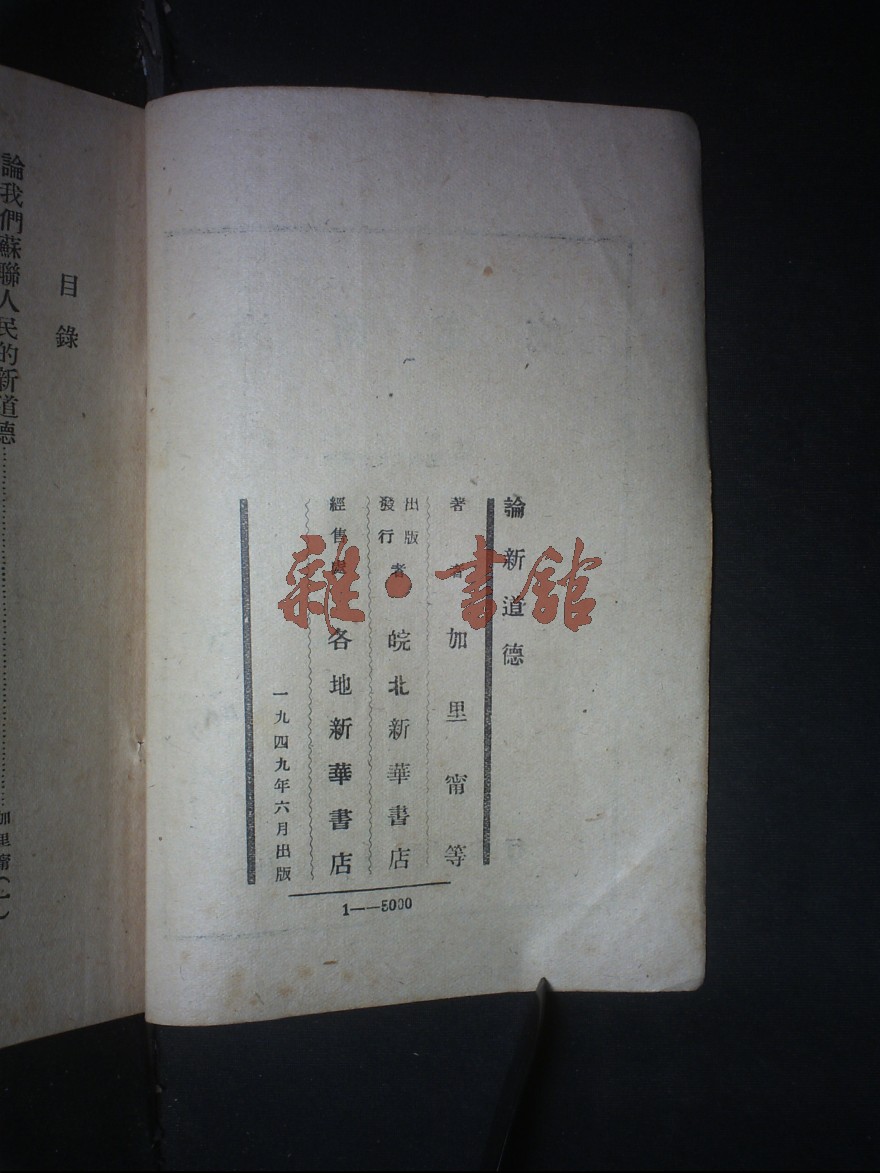 論新道德
著者 加里甯等
出版
發行者 皖北新華書店
經售處 各地新華書店
一九四九年六月出版
1——5000
雜·書館
目錄
論我們蘇聯人民的新道德……加里甯(一)